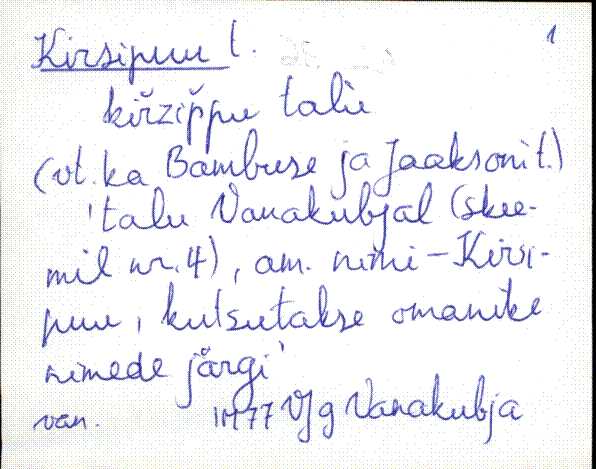 Kirsipuu t. 1
kiřzĭp̆pu talu
(vt. ka Bambuse ja Jaaksoni t.)
'talu Vanakubjal (skee-
mil nr. 4), am. nimi – Kirsi-
puu, kutsutakse omanike
nimede järgi'
van. 1977 VJg Vanakubja